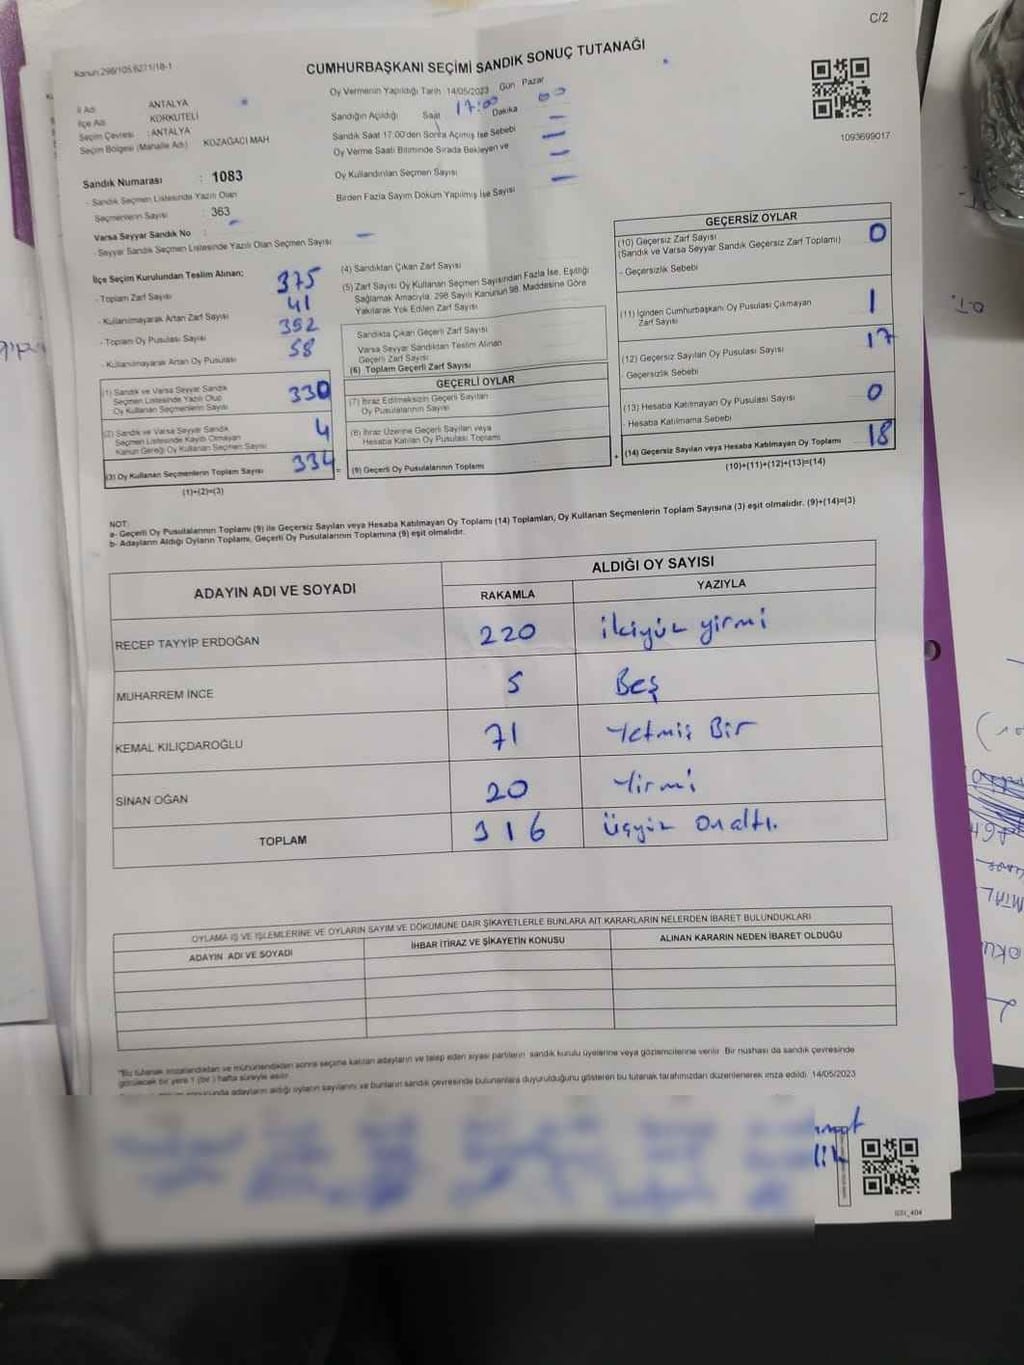 C/2
Kanun:298/105.6271/18-1
CUMHURBAŞKANI SEÇİMİ SANDIK SONUÇ TUTANAĞI
İl Adı ANTALYA
İlçe Adı KORKUTELİ
Seçim Çevresi : ANTALYA
Seçim Bölgesi (Mahalle Adı) KOZAĞACI MAH
Sandık Numarası : 1083
- Sandık Seçmen Listesinde Yazılı Olan
Seçmenlerin Sayısı : 363
Varsa Seyyar Sandık No : -
- Seyyar Sandık Seçmen Listesinde Yazılı Olan Seçmen Sayısı -
Oy Vermenin Yapıldığı Tarih 14/05/2023 Gün Pazar
Sandığın Açıldığı Saat 17:00 Dakika 00
Sandık Saat 17:00'den Sonra Açımış İse Sebebi -
Oy Verme Saati Bitiminde Sırada Bekleyen ve -
Oy Kullandırılan Seçmen Sayısı -
Birden Fazla Sayım Döküm Yapılmış İse Sayısı -
1093699017
İlçe Seçim Kurulundan Teslim Alınan;
- Toplam Zarf Sayısı 375
- Kullanılmayarak Artan Zarf Sayısı 41
- Toplam Oy Pusulası Sayısı 352
- Kullanılmayarak Artan Oy Pusulası 58
(1) Sandık ve Varsa Seyyar Sandık
Seçmen Listesinde Yazılı Olup
Oy Kullanan Seçmenlerin Sayısı 330
(2) Sandık ve Varsa Seyyar Sandık
Seçmen Listesinde Kayıtlı Olmayan
Kanun Gereği Oy Kullanan Seçmen Sayısı 4
(3) Oy Kullanan Seçmenlerin Toplam Sayısı 334 =
(1)+(2)=(3)
(4) Sandıktan Çıkan Zarf Sayısı
(5) Zarf Sayısı Oy Kullanan Seçmen Sayısından Fazla İse, Eşitliği
Sağlamak Amacıyla, 298 Sayılı Kanunun 98. Maddesine Göre
Yakılarak Yok Edilen Zarf Sayısı
Sandıkta Çıkan Geçerli Zarf Sayısı
Varsa Seyyar Sandıktan Teslim Alınan
Geçerli Zarf Sayısı
(6) Toplam Geçerli Zarf Sayısı
GEÇERLİ OYLAR
(7) İtiraz Edilmeksizin Geçerli Sayılan
Oy Pusulalarının Sayısı
(8) İtiraz Üzerine Geçerli Sayılan veya
Hesaba Katılan Oy Pusulası Toplamı
(9) Geçerli Oy Pusulalarının Toplamı +
GEÇERSİZ OYLAR
(10) Geçersiz Zarf Sayısı 0
(Sandık ve Varsa Seyyar Sandık Geçersiz Zarf Toplamı)
- Geçersizlik Sebebi
(11) İçinden Cumhurbaşkanı Oy Pusulası Çıkmayan
Zarf Sayısı 1
(12) Geçersiz Sayılan Oy Pusulası Sayısı 17
Geçersizlik Sebebi
(13) Hesaba Katılmayan Oy Pusulası Sayısı 0
- Hesaba Katılmama Sebebi
(14) Geçersiz Sayılan veya Hesaba Katılmayan Oy Toplamı 18
(10)+(11)+(12)+(13)=(14)
NOT:
a- Geçerli Oy Pusulalarının Toplamı (9) ile Geçersiz Sayılan veya Hesaba Katılmayan Oy Toplamı (14) Toplamları, Oy Kullanan Seçmenlerin Toplam Sayısına (3) eşit olmalıdır. (9)+(14)=(3)
b- Adayların Aldığı Oyların Toplamı, Geçerli Oy Pusulalarının Toplamına (9) eşit olmalıdır.
ADAYIN ADI VE SOYADI
ALDIĞI OY SAYISI
RAKAMLA YAZIYLA
RECEP TAYYİP ERDOĞAN 220 ikiyüz yirmi
MUHARREM İNCE 5 Beş
KEMAL KILIÇDAROĞLU 71 Yetmiş Bir
SİNAN OĞAN 20 Yirmi
TOPLAM 316 Üçyüz Onaltı.
OYLAMA İŞ VE İŞLEMLERİNE VE OYLARIN SAYIM VE DÖKÜMÜNE DAİR ŞİKAYETLERLE BUNLARA AİT KARARLARIN NELERDEN İBARET BULUNDUKLARI
ADAYIN ADI VE SOYADI İHBAR İTİRAZ VE ŞİKAYETİN KONUSU ALINAN KARARIN NEDEN İBARET OLDUĞU
"Bu tutanak imzalandıktan ve mühürlendikten sonra seçime katılan adayların ve talep eden siyasi partilerin sandık kurulu üyelerine veya gözlemcilerine verilir. Bir nüshası da sandık çevresinde
görülecek bir yere 1 (bir) hafta süreyle asılır.
sonucunda adayların aldığı oyların sayılarını ve bunların sandık çevresinde bulunanlara duyurulduğunu gösteren bu tutanak tarafımızdan düzenlenerek imza edildi. 14/05/2023